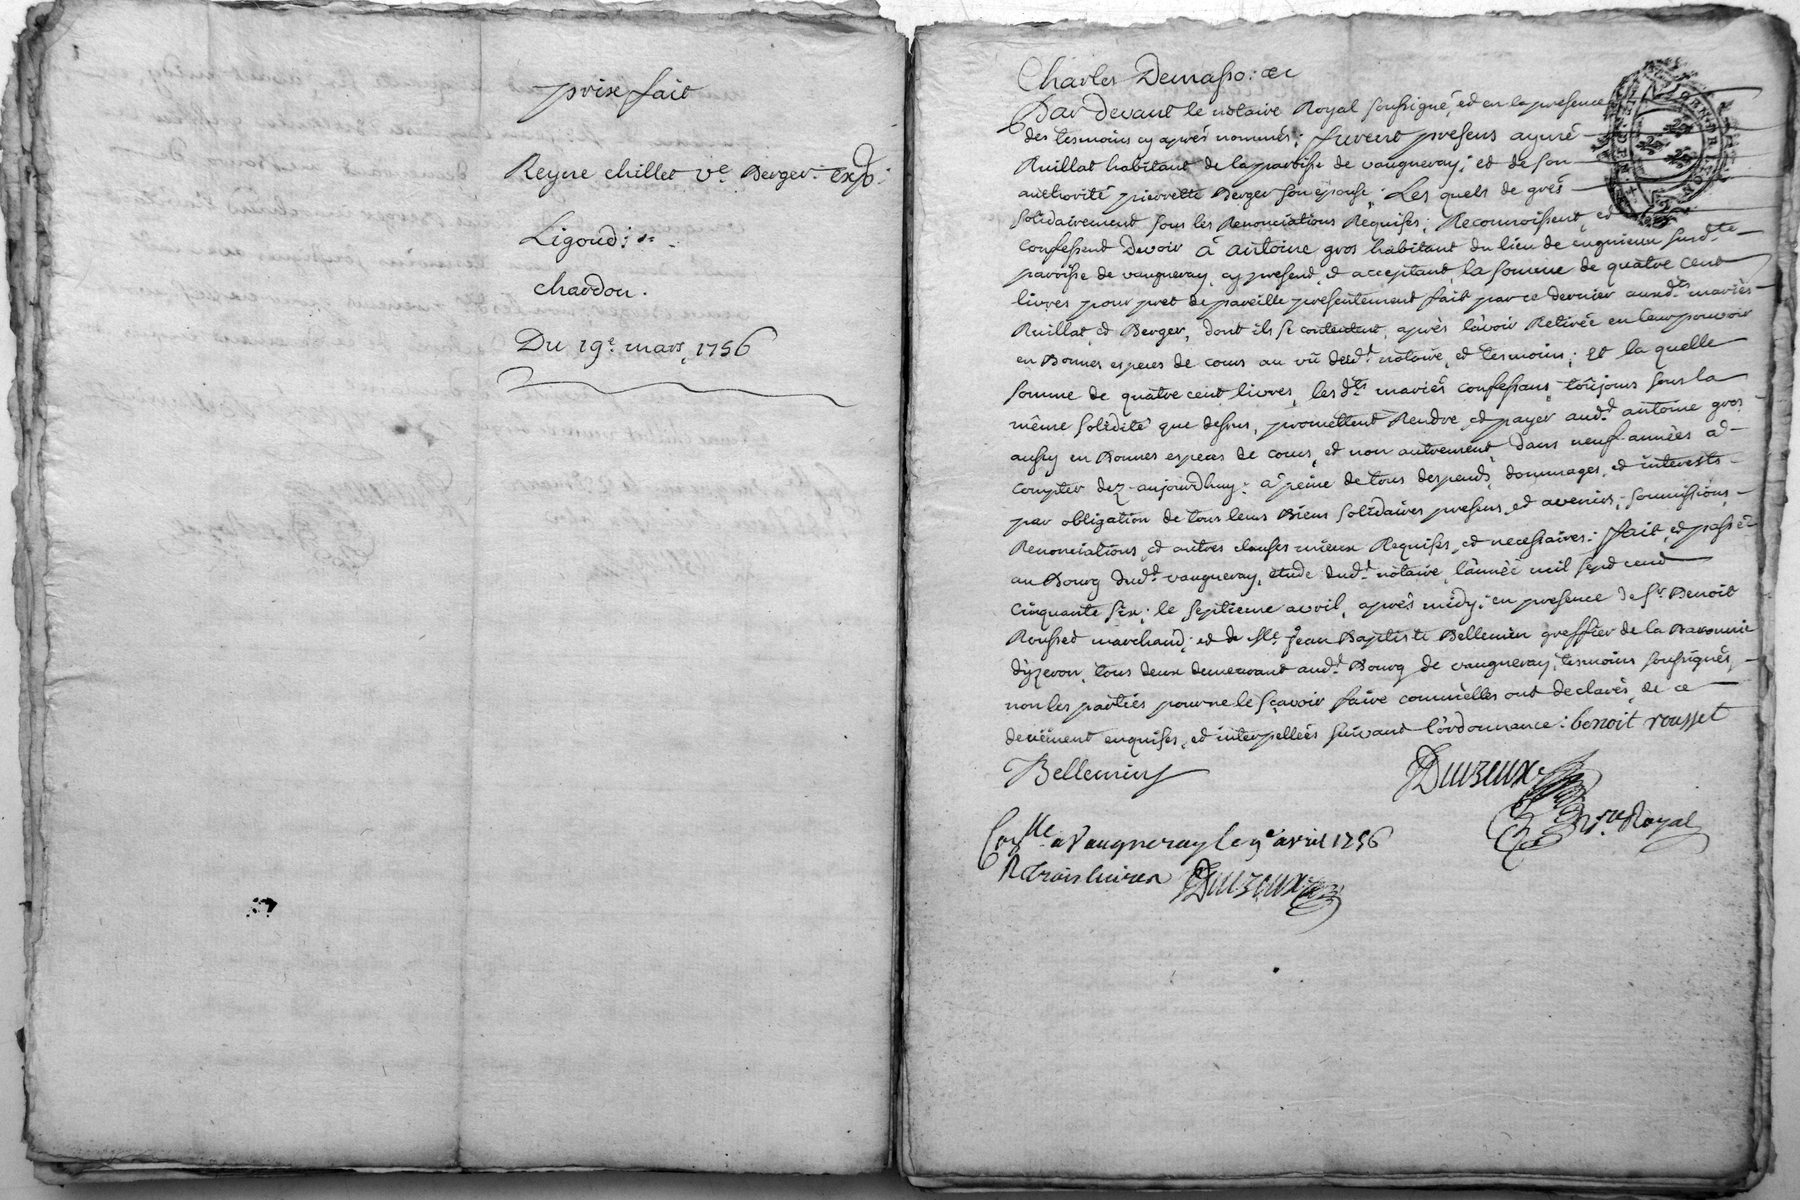 prix fait
Reyne chillet ve. Berger: exp:
Ligoud:
chardon.
Du 19e. mars, 1756
Charles Demasso: &c
Par Devant le notaire Royal soussigné, et en la presence
des tesmoins cy aprés nommés; furent presens aymé
Ruillat habitant de la paroisse de vaugneray; et de son
authorité pierrette Berger son épouse; Les quels de grés
solidairement sous les Renonciations Requises; Reconnoissent, et
confessent Devoir à antoine gros habitant du lieu de surd.te
paroisse de vaugneray, cy present, et acceptant, la somme de quatre cent
livres pour pret de pareille presentement fait par ce dernier auxd.ts mariés
Ruillat, et Berger, dont ils se contentent, aprés l'avoir Retirée en leur pouvoir
en Bonnes especes de cours au vû dud.t notaire, et tesmoins; et la quelle
somme de quatre cent livres, lesd.ts mariés confessans, toûjours sous la
même solidité que dessus, promettent Rendre, et payer aud.t antoine gros
aussy en Bonnes especes de cours, et non autrement, dans neuf années à
compter dez aujourdhuy: à peine de tous despends, dommages, et interests
par obligation de tous leurs Biens solidaires presens, et avenirs; soumissions,
Renonciations, et autres clauses mieux Requises, et necessaires: fait, et passé
au Bourg dud.t vaugneray, étude dud.t notaire, l'année mil sept cent
cinquante six; le septieme avril, aprés midy; en presence de sr. Benoit
Rousset marchand; et de Me. Jean Baptiste Bellemin greffier de la Baronnie
d'yzeron, tous deux demeurant aud.t Bourg de vaugneray, tesmoins soussignés,
non les parties pour ne le sçavoir faire comm'elles ont declarés, de ce
deuëment enquises, et interpellées suivant l'ordonnance: benoit rousset
Bellemin
Duizeux
n.re Royal
Con.lle a Vaugneray le 9e avril 1756
R trois livres Duizeux